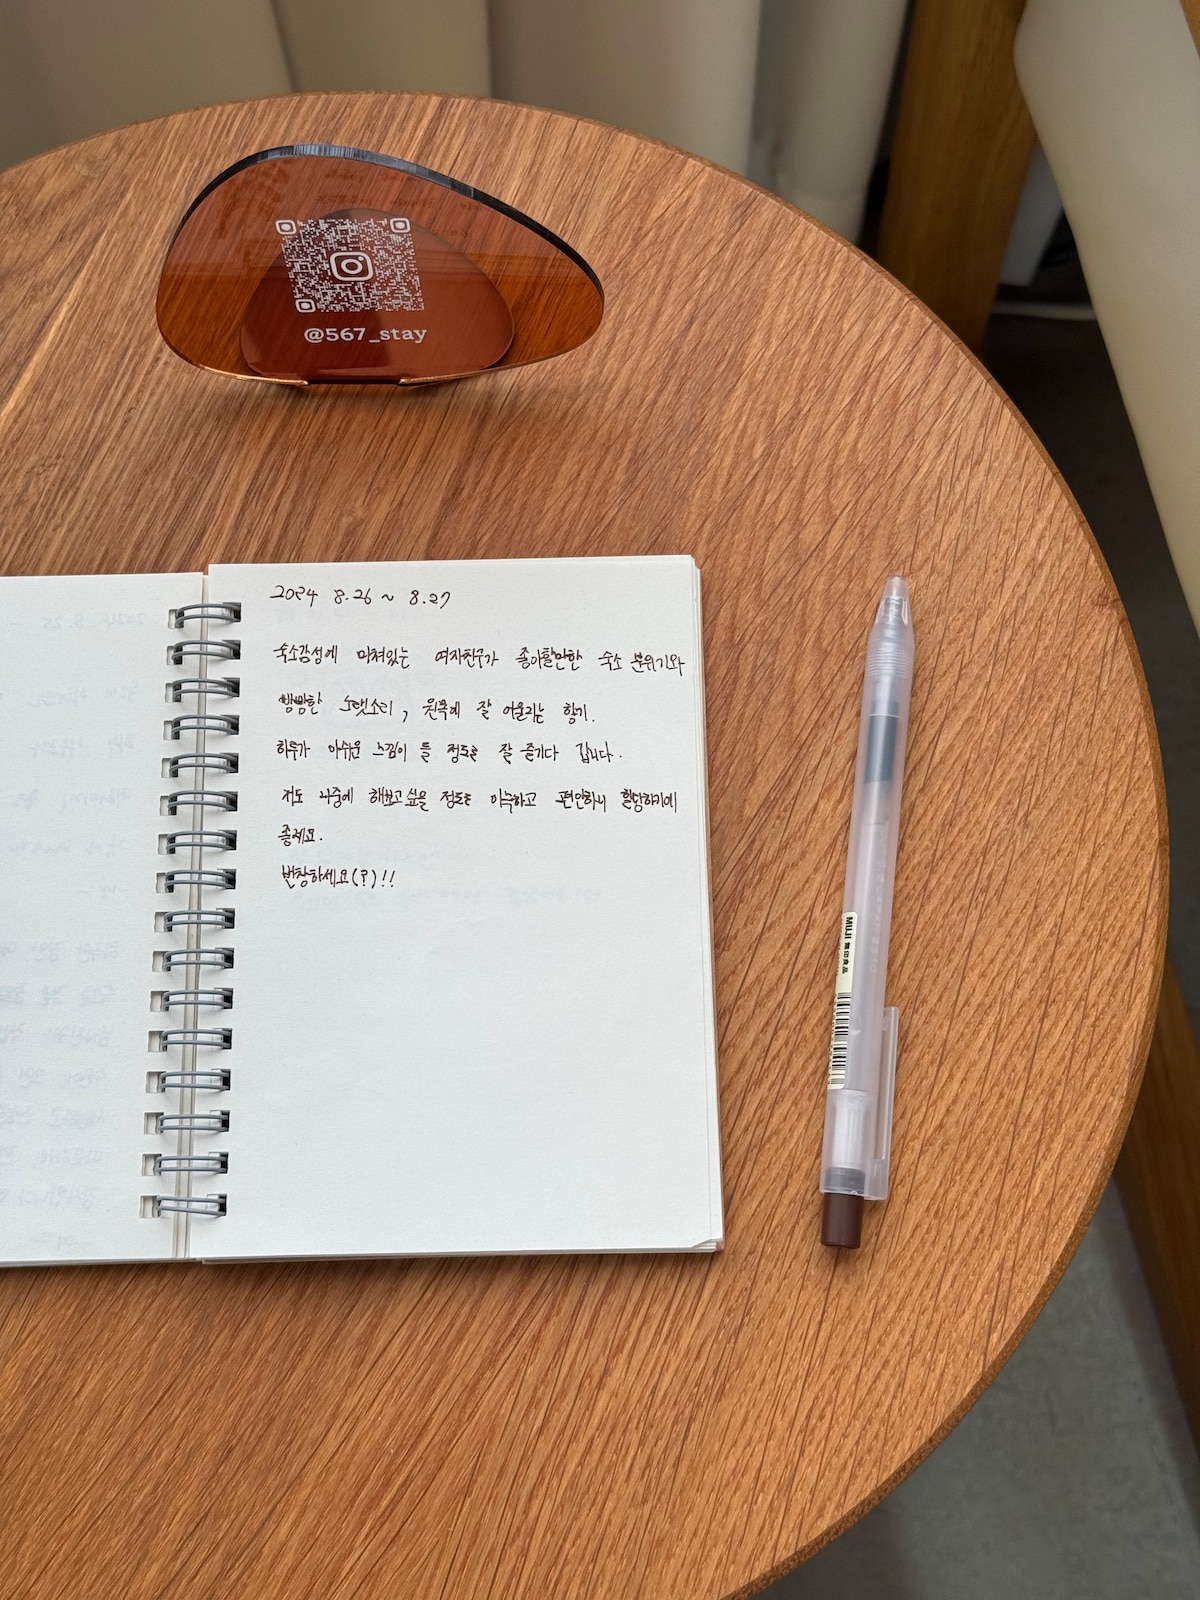 @567_stay
2024 8.26 ~ 8.27
숙소감성에 미쳐있는 여자친구가 좋아할만한 숙소 분위기와
빵빵한 노랫소리, 원목에 잘 어울리는 향기.
하루가 아쉬운 느낌이 들 정도로 잘 즐기다 갑니다.
저도 나중에 해보고싶을 정도로 아늑하고 편안하니 힐링하기에
좋네요.
번창하세요(?)!!
MUJI 無印良品